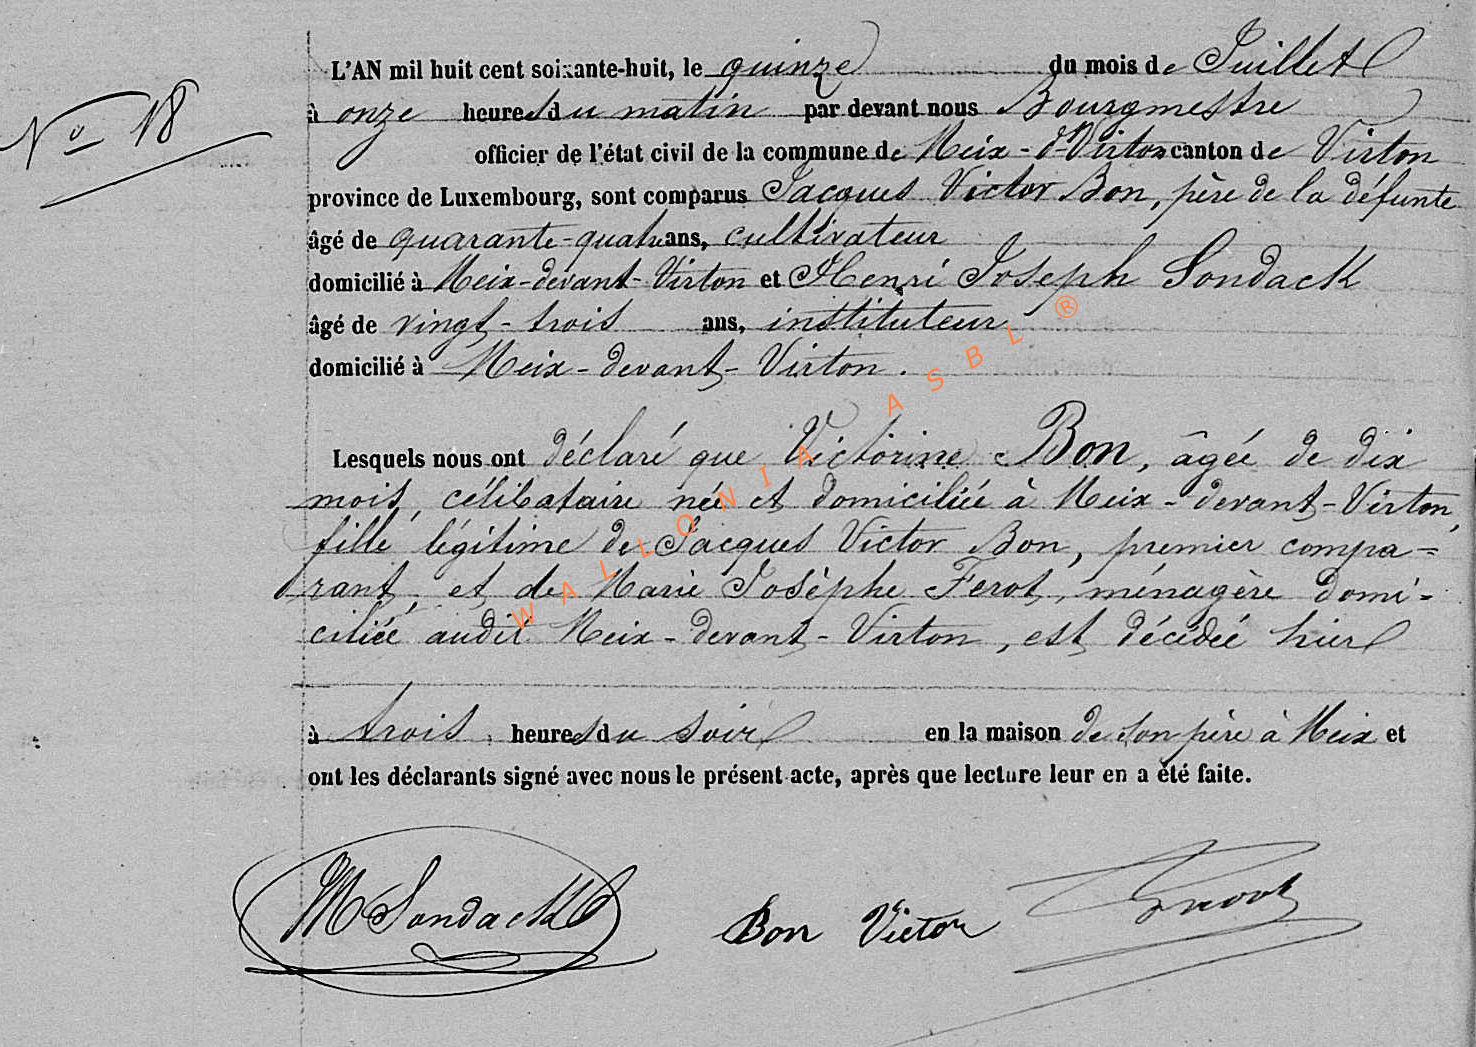 L'AN mil huit cent soixante-huit, le quinze du mois de Juillet
N° 18
à onze heures du matin par devant nous Bourgmestre
officier de l'état civil de la commune de Meix-dt-Virton canton de Virton
province de Luxembourg, sont comparus Jacques Victor Bon, père de la défunte
âgé de quarante-quatre ans, cultivateur
domicilié à Meix-devant-Virton et Henri Joseph Sondack
âgé de vingt-trois ans, instituteur
domicilié à Meix-devant-Virton.
Lesquels nous ont déclaré que Victorine Bon, âgée de dix
mois, célibataire née et domiciliée à Meix-devant-Virton,
fille légitime de Jacques Victor Bon, premier compa=
rant, et de Marie Josèphe Ferot, ménagère domi=
ciliée audit Meix-devant-Virton, est décédée hier
à trois heures du soir en la maison de son père à Meix et
ont les déclarants signé avec nous le présent acte, après que lecture leur en a été faite.
Sondack
Bon Victor
WALLONIA ASBL ®